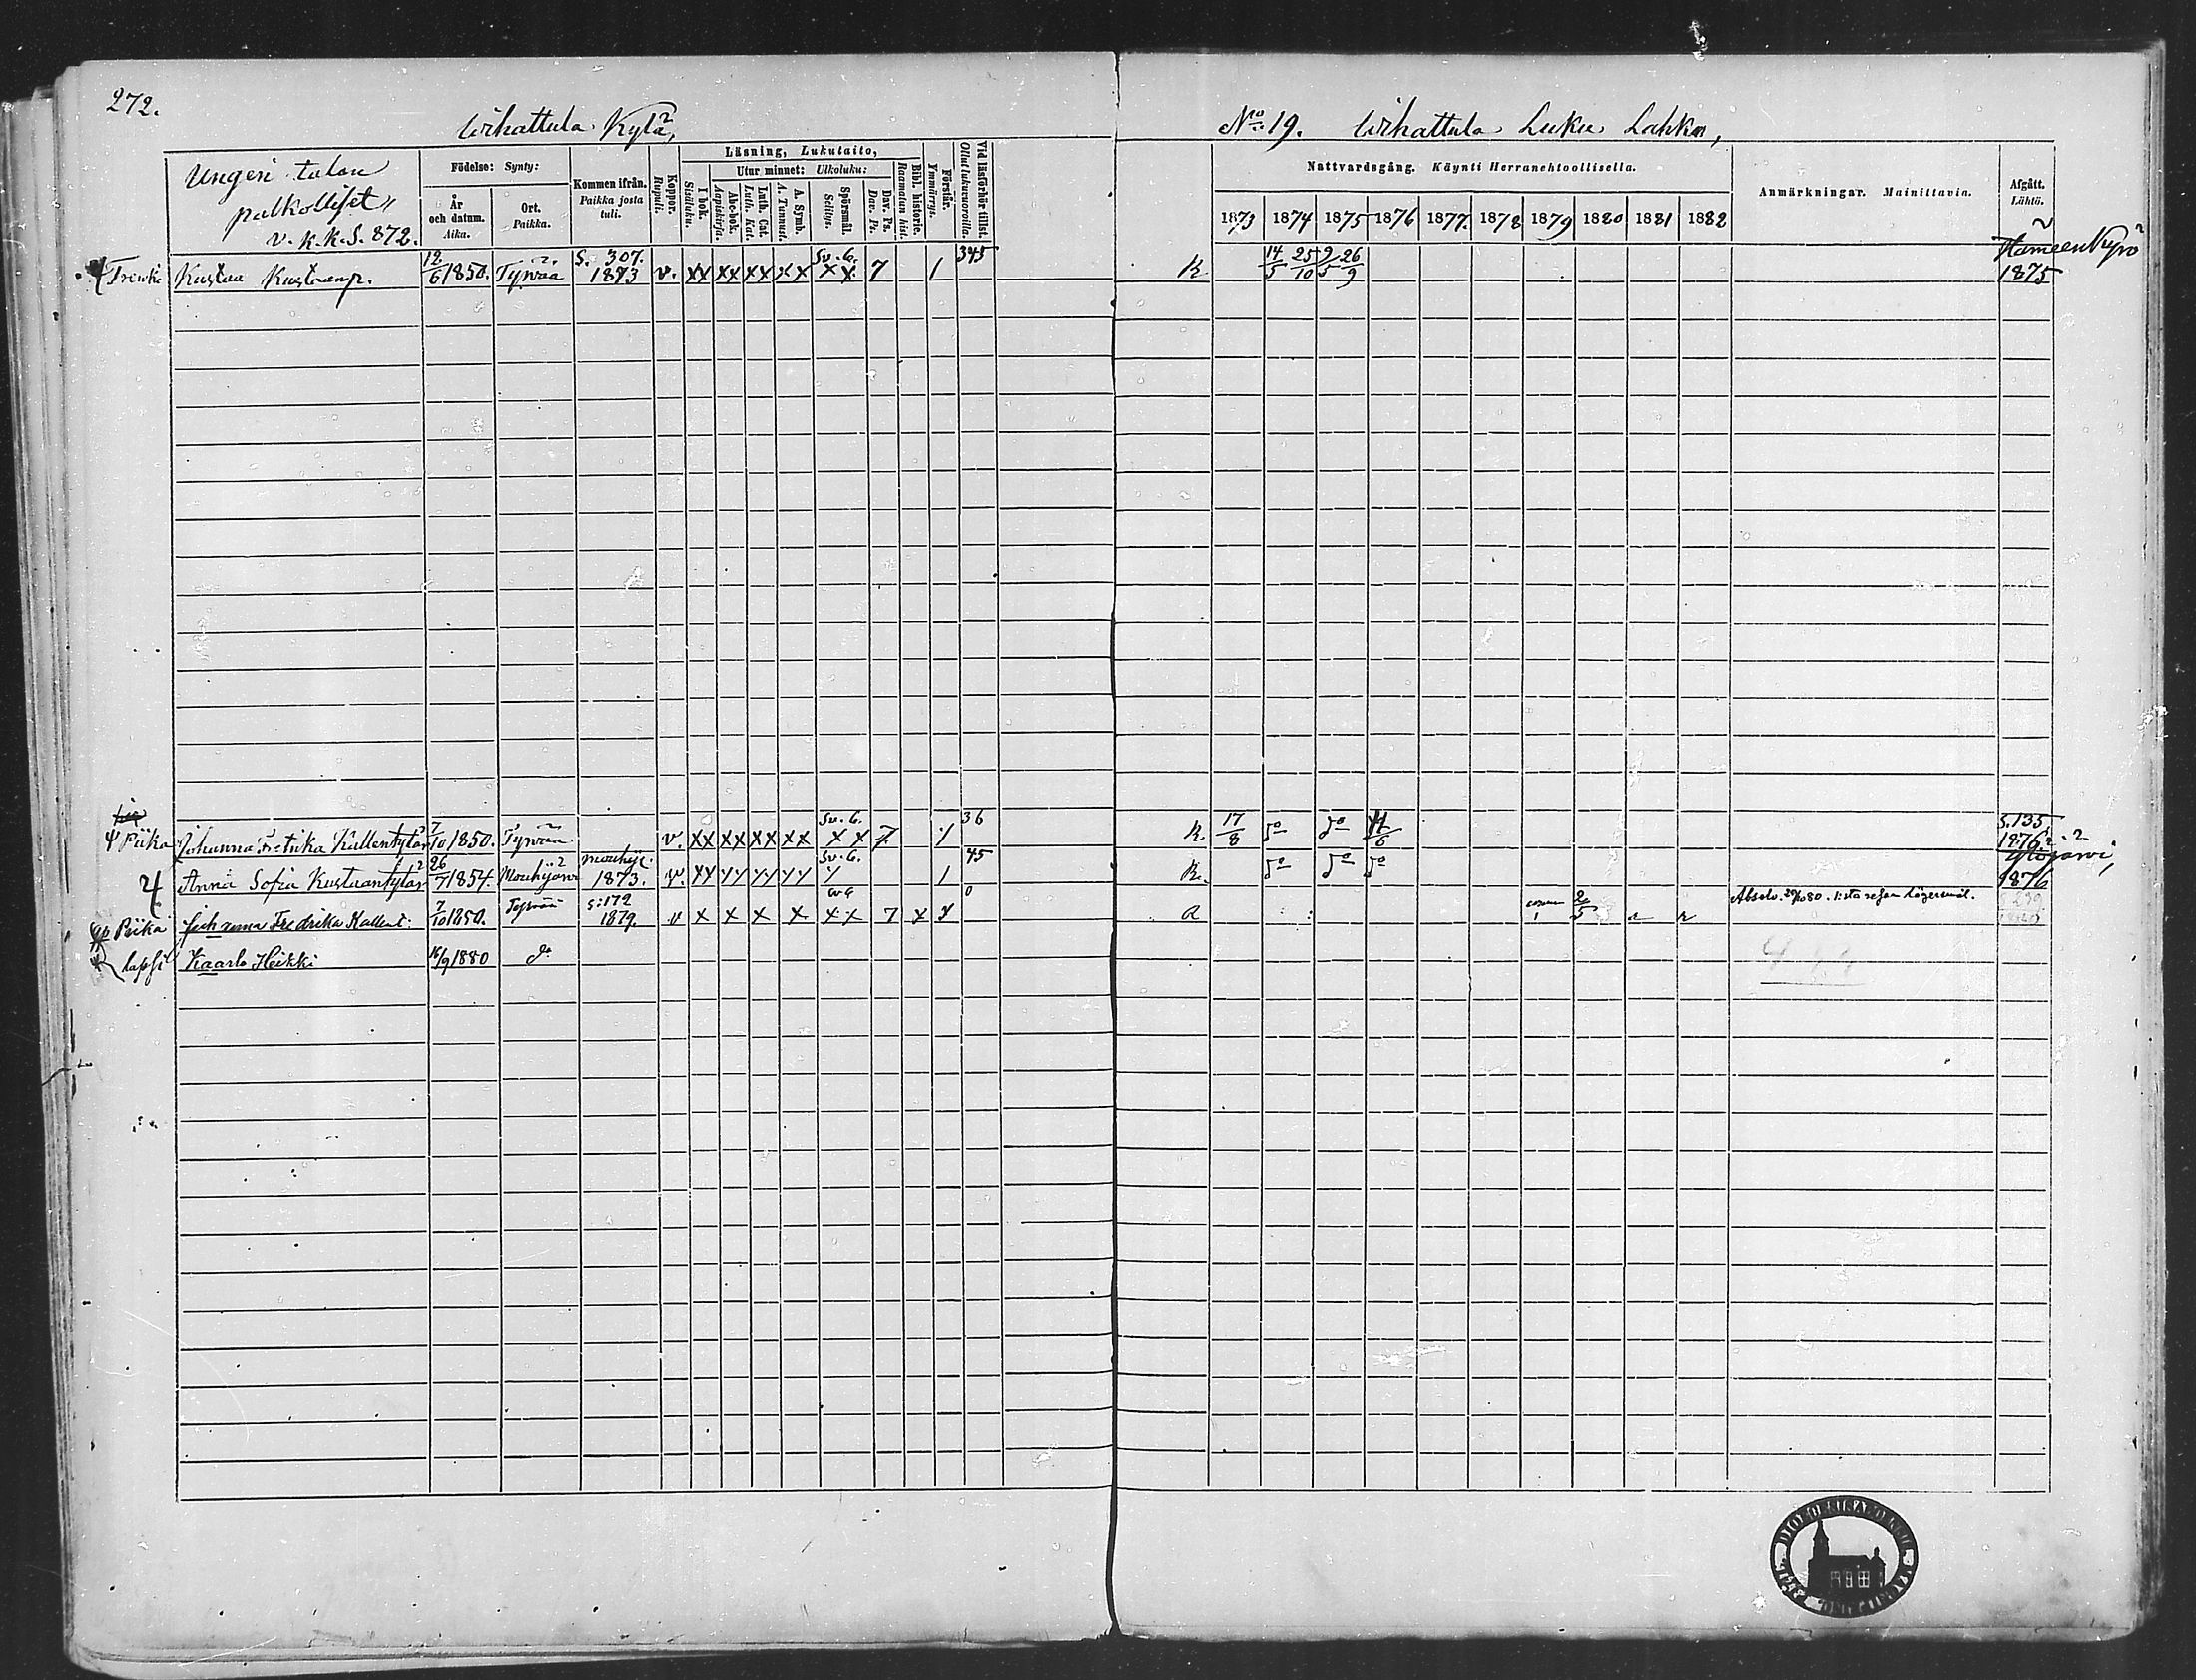 272.
Kylä,
No 19. Luku Lahko,
Ungeri talon
palkolliset,
v. k. k. S. 872.
Födelse: Synty:
År och datum. Aika.
Ort. Paikka.
Kommen ifrån. Paikka josta tuli.
Koppor. Rupuli.
Läsning, Lukutaito,
I bok. Sisäluku.
Utur minnet: Ulkoluku:
Abc-bok. Aapiskirja.
Luth. Cat. Luth. Kat.
A. Symb. A. Tunnust.
Spörsmål. Selitys.
Dav. Ps. Dav. Ps.
Bibl. historie. Raamatun hist.
Förstår. Ymmärrys.
Vid läsförhör tillst. Ollut lukuvuoroilla.
Nattvardsgång. Käynti Herranehtoollisella.
1873 1874 1875 1876 1877. 1878 1879 1880 1881 1882
Anmärkningar. Mainittavia.
Afgått. Lähtö.
Trenki Kustaa Kustaanp. 12/6 1850. Tyrvää S. 307. 1873 v. XX XX XX XX Sv. G. X X 7 1 345 R 14/5 25/10 9/5 26/9 HämeenKyrö 1875
Piika Johanna Kallentytär 7/10 1850. Tyrvää. v. XX XX XX XX Sv. G. X X 7 1 36 R. 17/8 do do 11/6 S. 135 1876
Anna Sofia Kustaantytär 26/7 1854. Mouhijärvi Mouhij. 1873. v. Sv. G. 1 45 R. do do do Ylöjärvi, 1876
Piika Johanna Fredrika Kallent: 7/10 1850. Tyrvää S: 172 1879. v X X X X X X 7 X 0 2/5 Absolv. 1:sta resan lägersmål.
lapsi Kaarlo Heikki 16/9 1880 do